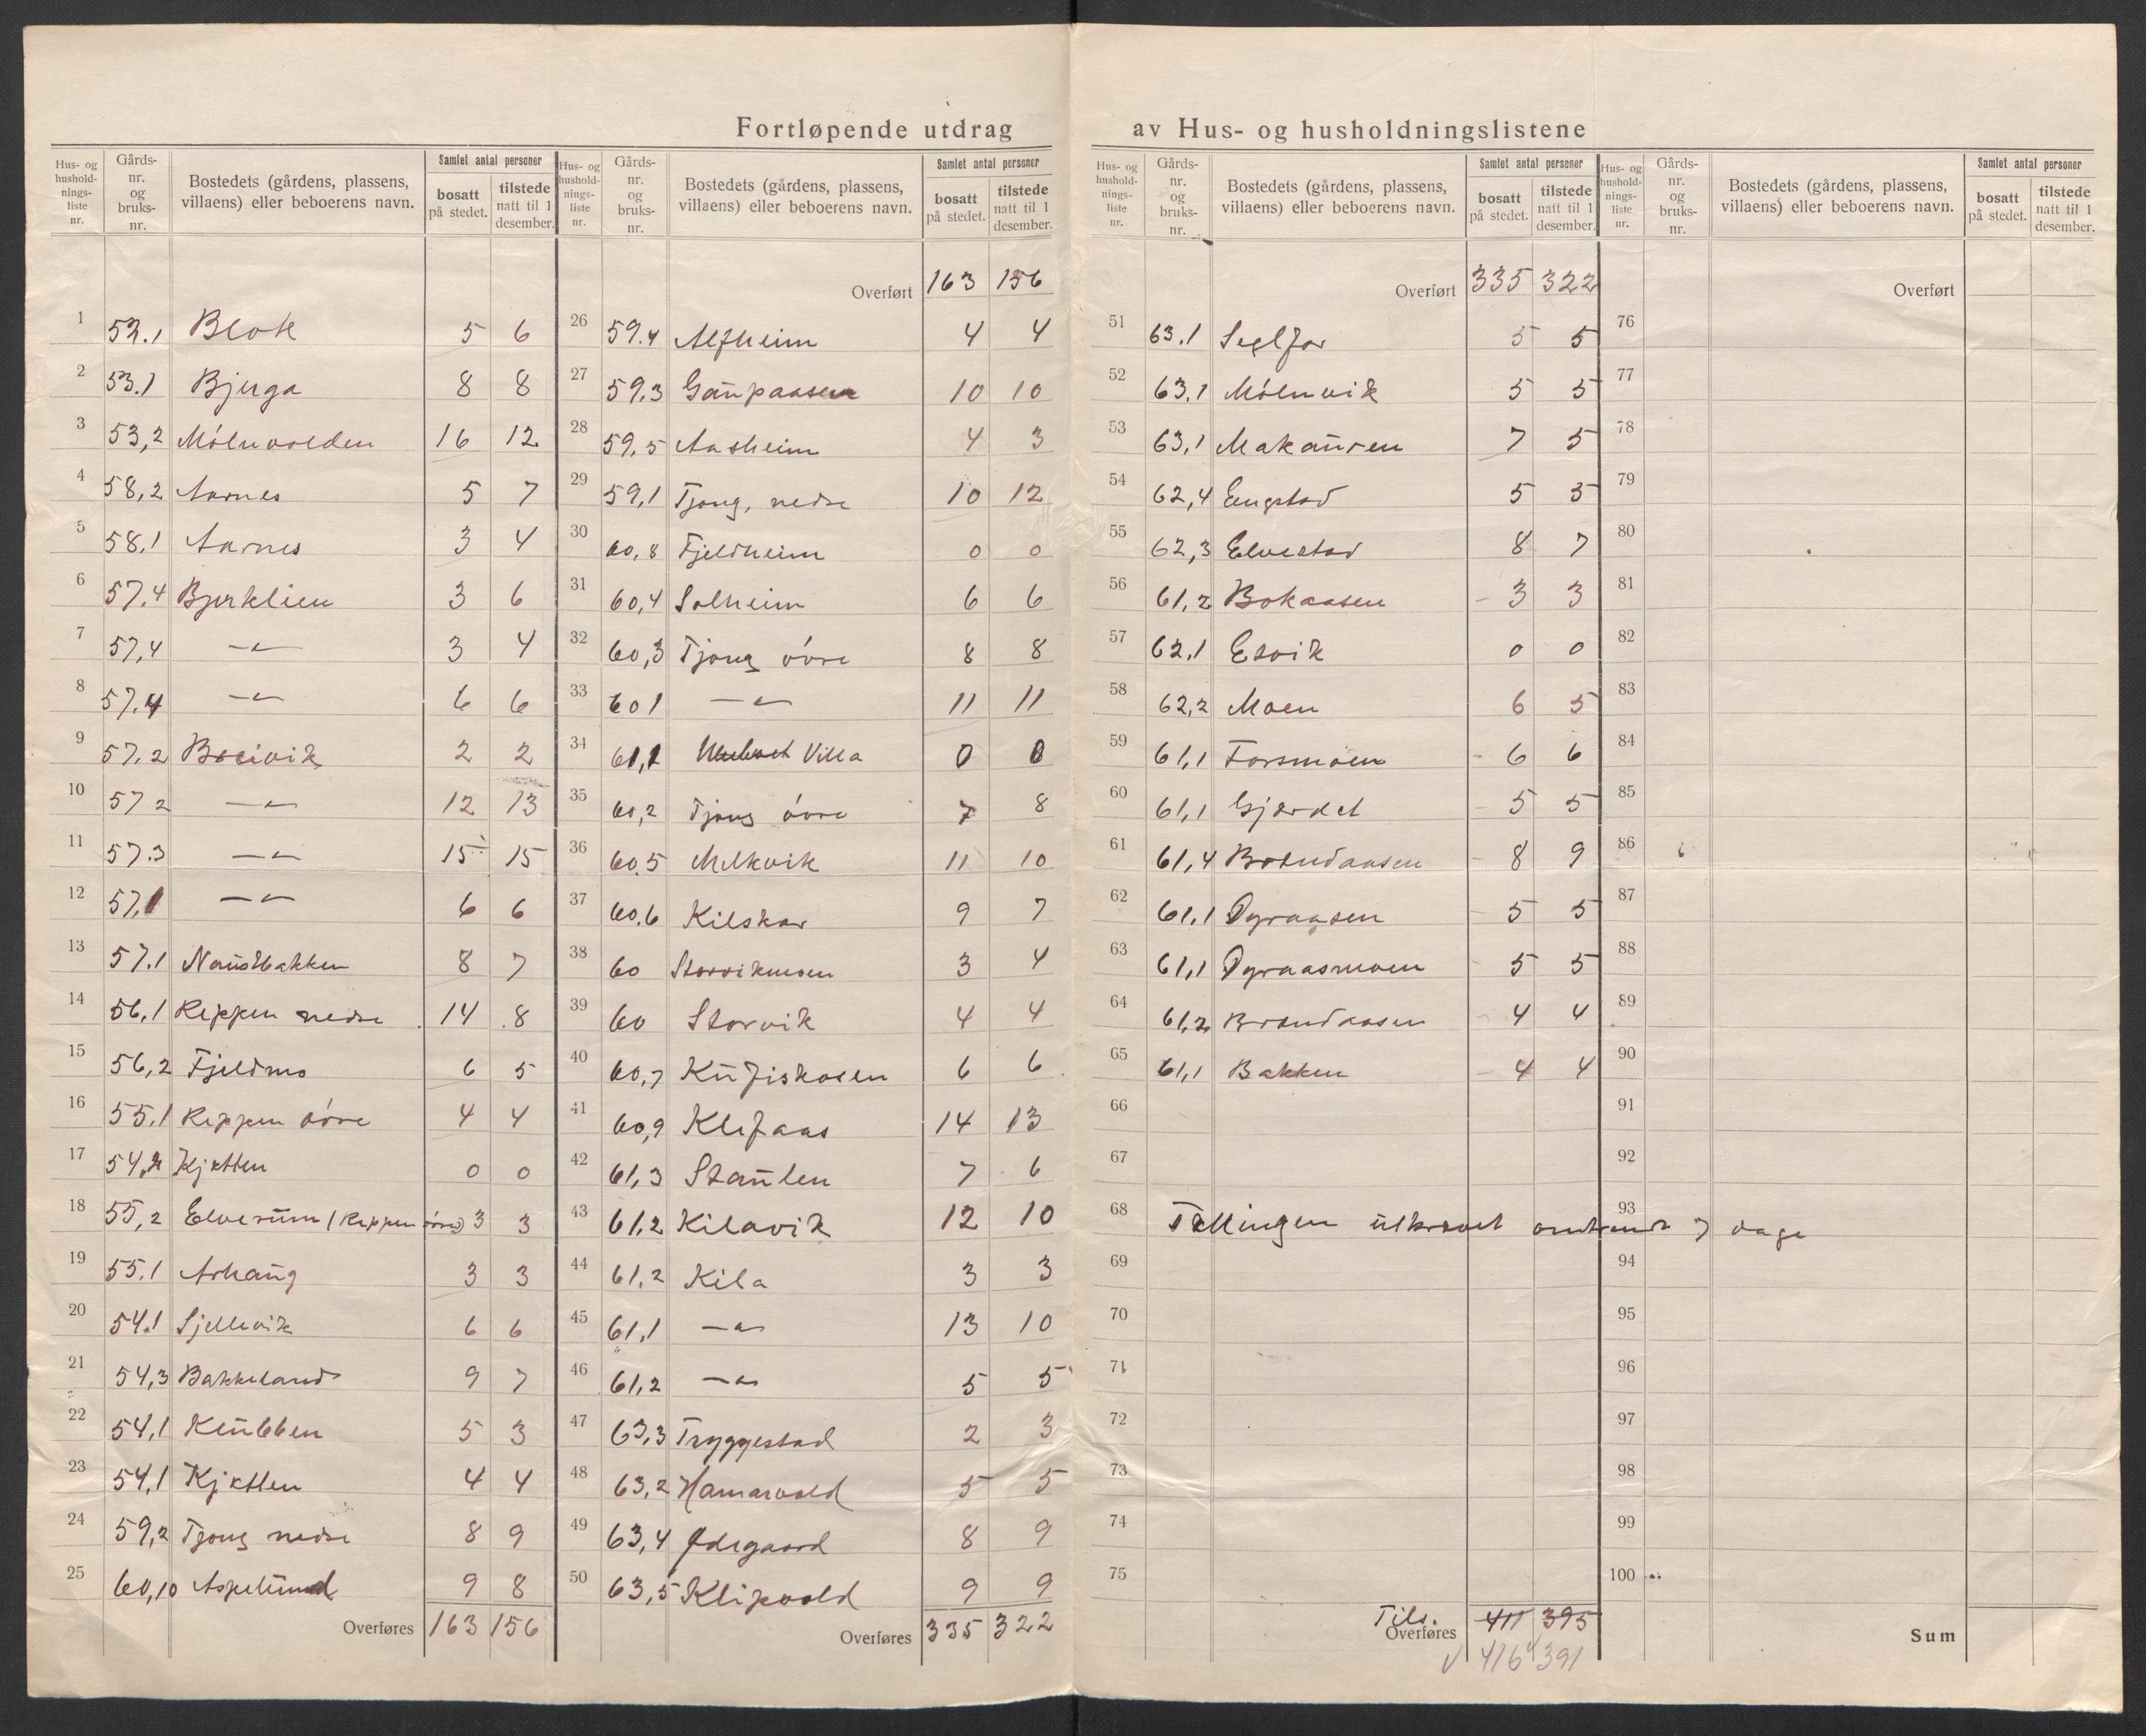 Fortløpende utdrag av Hus- og husholdningslistene
Hus- og husholdningsliste nr. Gårds-nr. og bruks-nr. Bostedets (gårdens, plassens, villaens) eller beboerens navn. Samlet antal personer bosatt på stedet. tilstede natt til 1 desember.
1 52.1 Blok 5 6
2 53.1 Bjerga 8 8
3 53,2 Mólnvolden 16 12
4 58,2 Aarnes 5 7
5 58.1 Aarnes 3 4
6 57.4 Bjerklien 3 6
7 57,4 —"— 3 4
8 57.4 —"— 6 6
9 57.2 2 2
10 57 2 —"— 12 13
11 57.3 —"— 15 15
12 57,1 —"— 6 6
13 57.1 Naustbakken 8 7
14 56,1 Reppen nedre 14 8
15 56,2 Fjeldmo 6 5
16 55.1 Reppen óvre 4 4
17 54,2 Kjetten 0 0
18 55,2 Elverum (Reppen óvre) 3 3
19 55.1 Arhaug 3 3
20 54.1 Sjellevik 6 6
21 54,3 Bakkeland 9 7
22 54,1 Klubben 5 3
23 54,1 Kjetten 4 4
24 59,2 Tjong nedre 8 9
25 60,10 Aspelund 9 8
Overføres 163 156
Hus- og husholdningsliste nr. Gårds-nr. og bruks-nr. Bostedets (gårdens, plassens, villaens) eller beboerens navn. Samlet antal personer bosatt på stedet. tilstede natt til 1 desember.
Overført 163 156
26 59.4 Alfheim 4 4
27 59.3 Gaupaasen 10 10
28 59,5 Aasheim 4 3
29 59,1 Tjong, nedre 10 12
30 60,8 Fjeldheim 0 0
31 60,4 Solheim 6 6
32 60,3 Tjong óvre 8 8
33 60 1 —"— 11 11
34 61,1 Villa 0 0
35 60,2 Tjong óvre 7 8
36 60.5 Melkvik 11 10
37 60.6 Kilskar 9 7
38 60 Storvikmoen 3 4
39 60 Storvik 4 4
40 60,7 Kufiskosen 6 6
41 60,9 Klefaas 14 13
42 61,3 Staulen 7 6
43 61,2 Kilavik 12 10
44 61,2 Kila 3 3
45 61,1 —"— 13 10
46 61,2 —"— 5 5
47 63,3 Tryggestad 2 3
48 63,2 Hamarvold 5 5
49 63,4 Ødegaard 8 9
50 63,5 Klipvold 9 9
Overføres 335 322
Hus- og husholdningsliste nr. Gårds-nr. og bruks-nr. Bostedets (gårdens, plassens, villaens) eller beboerens navn. Samlet antal personer bosatt på stedet. tilstede natt til 1 desember.
Overført 335 322
51 63.1 Seglfor 5 5
52 63.1 Mólnvik 5 5
53 63,1 Makauren 7 5
54 62,4 Engstad 5 5
55 62,3 Elvestad 8 7
56 61,2 Bokaasen 3 3
57 62.1 Esvik 0 0
58 62,2 Moen 6 5
59 61,1 Forsmoen 6 6
60 61,1 Gjærdet 5 5
61 61,4 Brændaasen 8 9
62 61.1 Dyraasen 5 5
63 61,1 Dyraasmoen 5 5
64 61,2 Brændaasen 4 4
65 61,1 Bakken 4 4
66
67
68 Tællingen utkrævet omtrent 7 dage
69
70
71
72
73
74
75
Tils.
Overføres 411 395
416 391
Hus- og husholdningsliste nr. Gårds-nr. og bruks-nr. Bostedets (gårdens, plassens, villaens) eller beboerens navn. Samlet antal personer bosatt på stedet. tilstede natt til 1 desember.
Overført
76
77
78
79
80
81
82
83
84
85
86
87
88
89
90
91
92
93
94
95
96
97
98
99
100
Sum